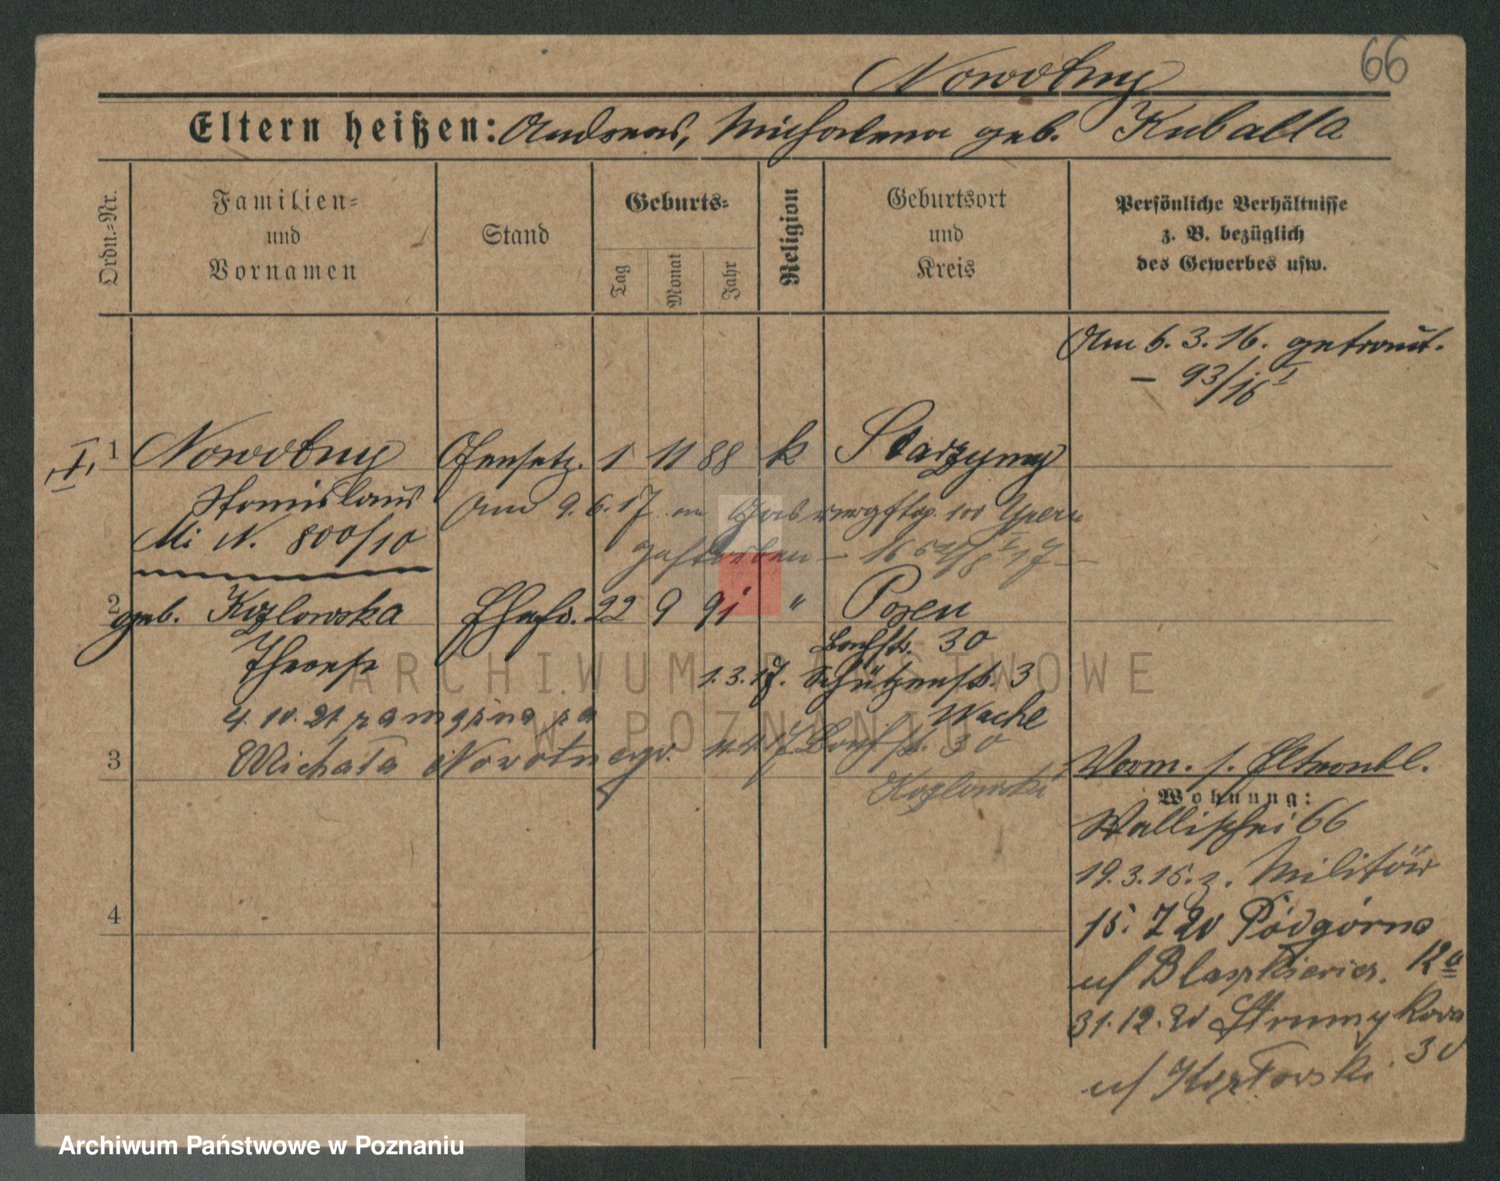 66
Nowotny
Eltern heißen: Andreas, Michalena geb. Kuballa
Ordn.-Nr.
Familien- und Vornamen
Stand
Geburts-
Tag
Monat
Jahr
Religion
Geburtsort und Kreis
Persönliche Verhältnisse z. B. bezüglich des Gewerbes usw.
Am 6. 3. 16. getraut.
– 93/16 I
1 Nowotny Ofensetz. 1 11 88 k Starzyny
Stanislaus Am 9. 6. 17 an
Mi N. 800/10 gestorben –
2 geb. Kozlowska Ehefr. 22 9 91 " Posen
Therese Bachstr. 30
1. 3. 17. Schützenstr. 3
4. 10. 21 zamężna za Wache
Michała Nowotnego. Bachstr. 30
3
Kozlowski
Vorm. s. Elternbl.
Wohnung:
Wallischei 66
19. 3. 15. z. Militär
4
15. 7 20 Podgórna
u/ Blaszkiewicz. 12a
31. 12. 20 Strumykowa
30
u/ Kozłowski
ARCHIWUM PAŃSTWOWE
W POZNANIU
Archiwum Państwowe w Poznaniu